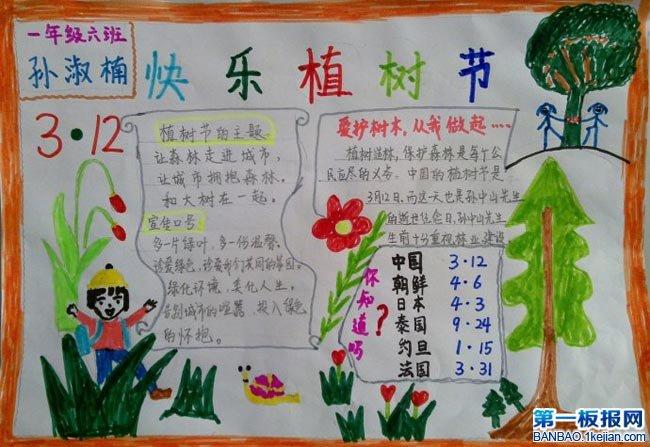 一年级六班
孙淑楠
快乐植树节
3·12
植树节的主题
让森林走进城市,
让城市拥抱森林。
和大树在一起。
宣传口号
多一片绿叶,多一份温馨。
珍爱绿色,珍爱我们共同的家园。
绿化环境,美化人生,
告别城市的喧嚣,投入绿色
的怀抱。
爱护树木,从我做起……
植树造林,保护森林是每个公
民应尽的义务。中国的植树节是
3月12日,而这天也是孙中山先生
的逝世纪念日,孙中山先生
生前十分重视林业建设。
你知道吗?
中国 3·12
朝鲜 4·6
日本 4·3
泰国 9·24
约旦 1·15
法国 3·31
第一板报网
BANBAO.1kejian.com